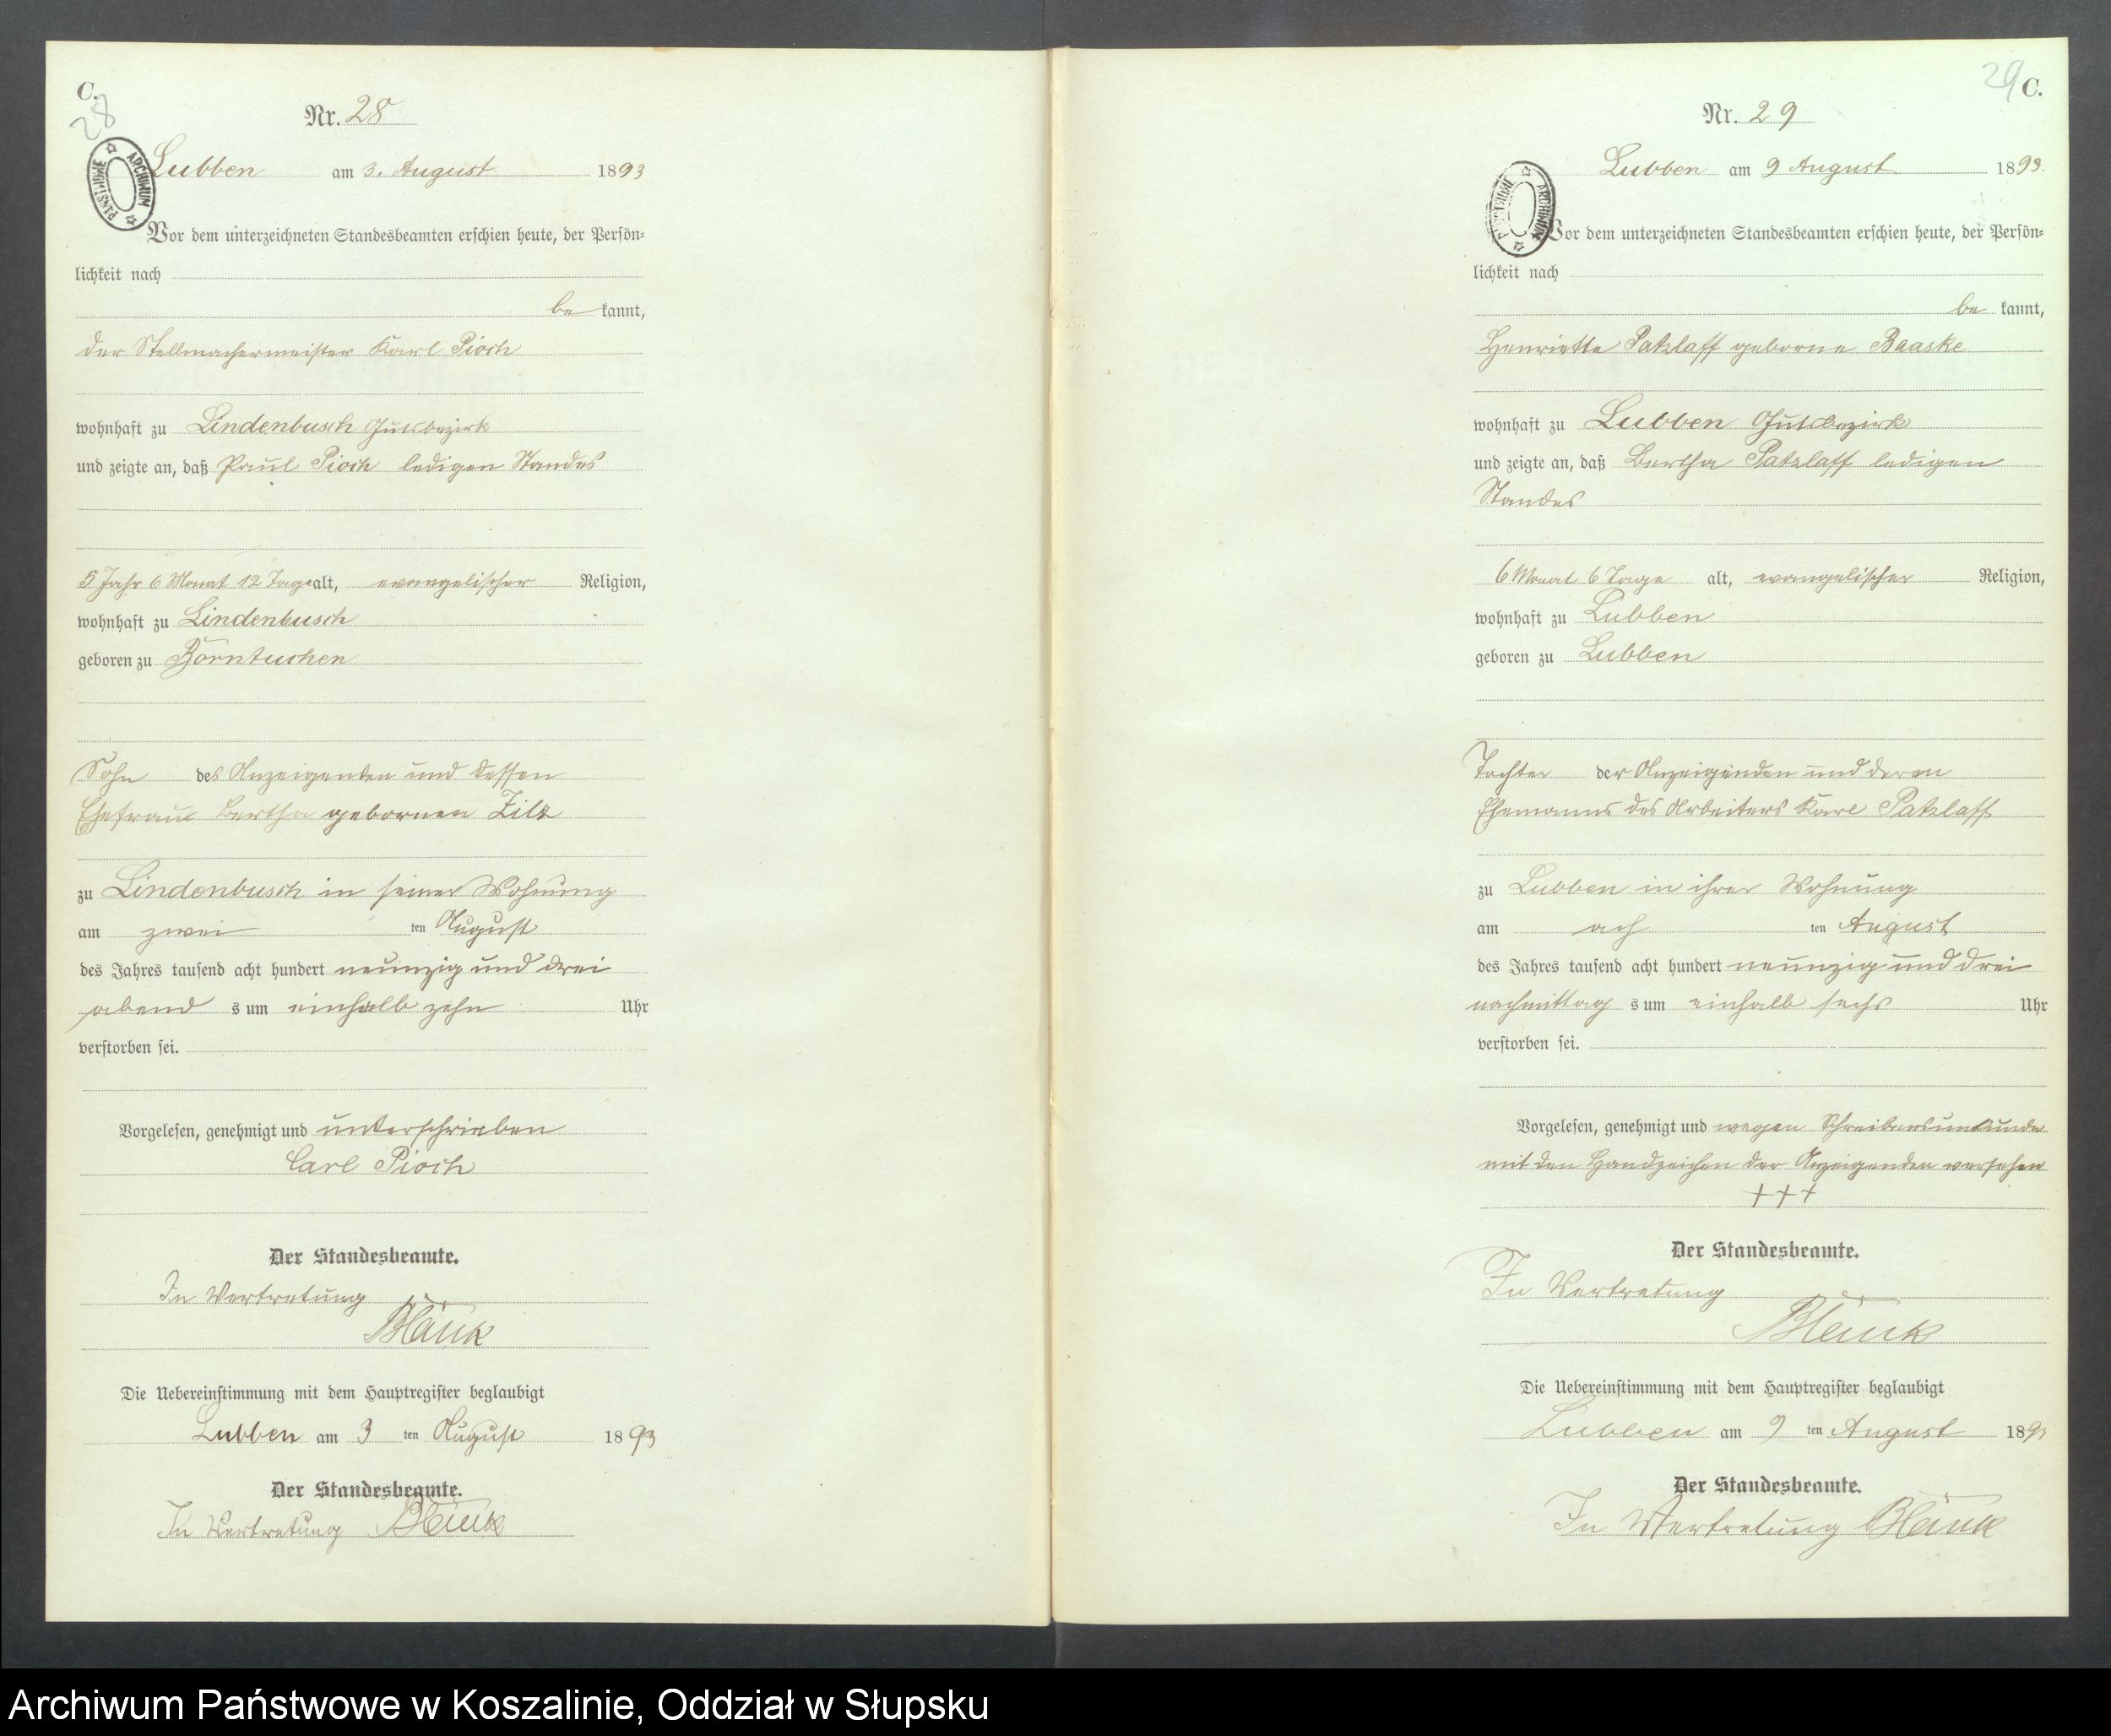 C.
28
Nr. 28
ARCHIWUM PAŃSTWOWE
Lubben am 3. August 1893
Vor dem unterzeichneten Standesbeamten erschien heute, der Persön=
lichkeit nach
be kannt,
der Stellmachermeister Karl Pioch
wohnhaft zu Lindenbusch Gutsbezirk
und zeigte an, daß Paul Pioch ledigen Standes
5 Jahr 6 Monat 12 Tage alt, evangelischer Religion,
wohnhaft zu Lindenbusch
geboren zu Borntuchen
Sohn des Anzeigenden und dessen
Ehefrau Bertha gebornen Zilz
zu Lindenbusch in seiner Wohnung
am zwei ten August
des Jahres tausend acht hundert neunzig und drei
abend s um einhalb zehn Uhr
verstorben sei.
Vorgelesen, genehmigt und unterschrieben
Carl Pioch
Der Standesbeamte.
In Vertretung
Blauk
Die Uebereinstimmung mit dem Hauptregister beglaubigt
Lubben am 3 ten August 1893
Der Standesbeamte.
In Vertretung Blauk
29 C.
Nr. 29
ARCHIWUM PAŃSTWOWE
Lubben am 9 August 1893.
Vor dem unterzeichneten Standesbeamten erschien heute, der Persön=
lichkeit nach
be kannt,
Henriette Patzlaff geborne Baaske
wohnhaft zu Lubben Gutsbezirk
und zeigte an, daß Bertha Patzlaff ledigen
Standes
6 Monat 6 Tage alt, evangelischer Religion,
wohnhaft zu Lubben
geboren zu Lubben
Tochter der Anzeigenden und deren
Ehemanns des Arbeiters Karl Patzlaff
zu Lubben in ihrer Wohnung
am ach ten August
des Jahres tausend acht hundert neunzig und drei
nachmittag s um einhalb sechs Uhr
verstorben sei.
Vorgelesen, genehmigt und wegen Schreibensunkunde
mit den Handzeichen der Anzeigenden versehen
+++
Der Standesbeamte.
In Vertretung
Blauk
Die Uebereinstimmung mit dem Hauptregister beglaubigt
Lubben am 9 ten August 189
Der Standesbeamte.
In Vertretung Blauk
Archiwum Państwowe w Koszalinie, Oddział w Słupsku